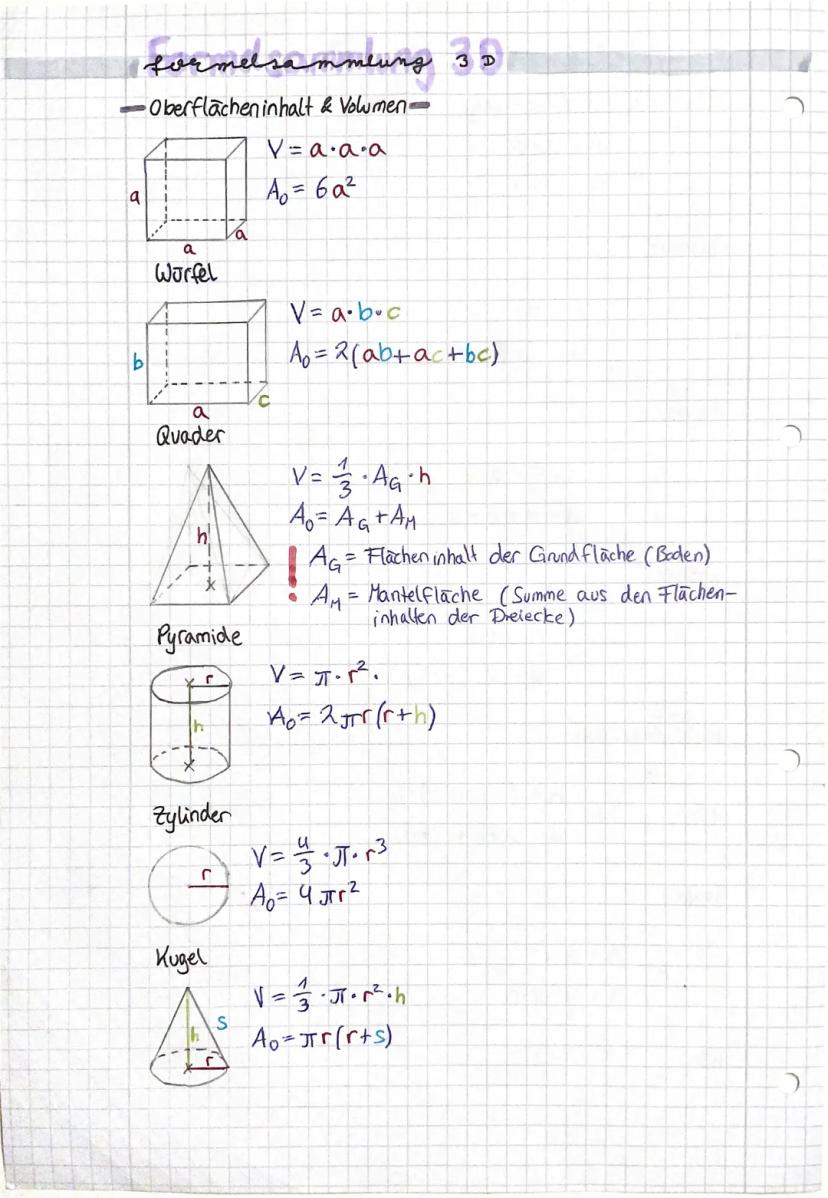 Formelsammlung 3D
Oberflächeninhalt & Volumen
V = a·a·a
A₀ = 6a²
a
a
a
Würfel
V = a·b·c
A₀ = 2(ab+ac+bc)
b
a
c
Quader
V = 1/3 · A_G · h
A₀ = A_G + A_M
h
! A_G = Flächeninhalt der Grundfläche (Boden)
A_M = Mantelfläche (Summe aus den Flächen-
inhalten der Dreiecke)
Pyramide
r
V = π · r² ·
A₀ = 2πr(r+h)
h
Zylinder
V = 4/3 · π · r³
r
A₀ = 4πr²
Kugel
V = 1/3 · π · r² · h
s
h
A₀ = πr(r+s)
r